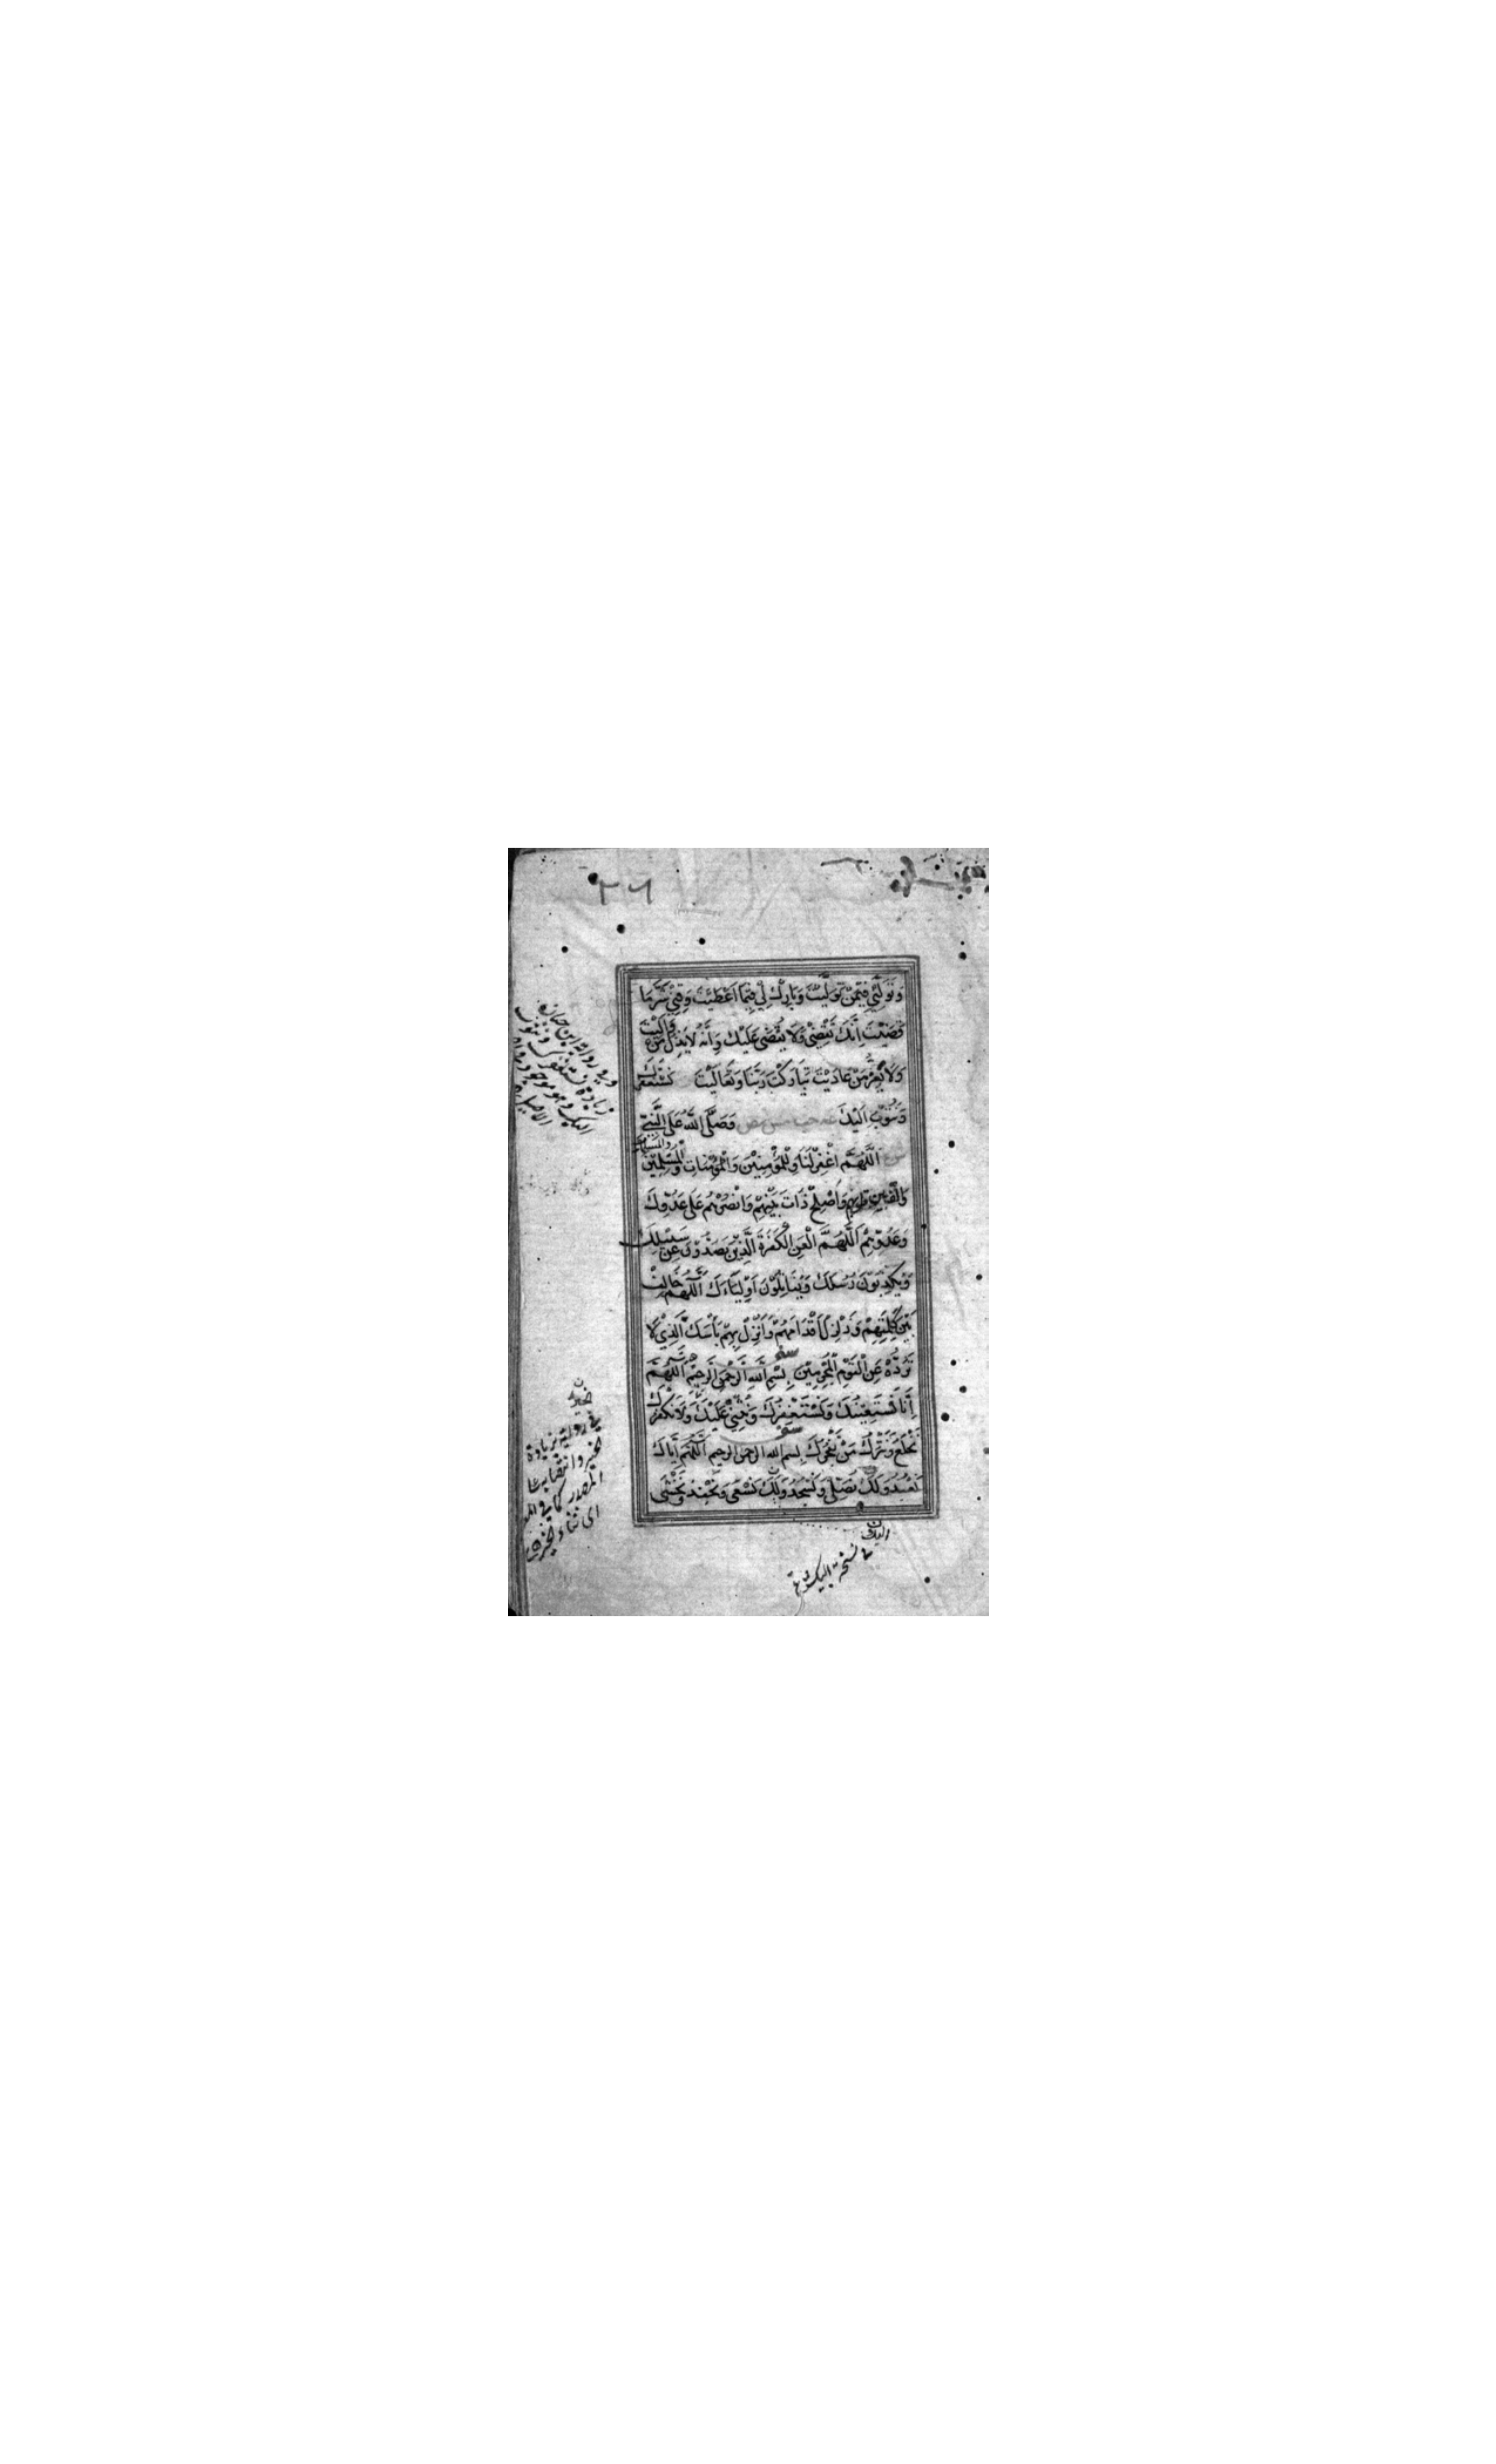 ٢٦
وَتَوَلَّنِي فِيمَنْ تَوَلَّيْتَ وَبَارِكْ لِي فِيمَا اَعْطَيْتَ وَقِنِي شَرَّمَا
قَضَيْتَ اِنَّكَ تَقْضِي وَلَا يُقْضَى عَلَيْكَ وَاَنَّهُ لَايَذِلُّ مَنْ وَالَيْتَ
وَلَايَعِزُّ مَنْ عَادَيْتَ تَبَارَكْتَ رَبَّنَا وَتَعَالَيْتَ نَسْتَغْفِرُكَ
وَنَتُوْبُ اِلَيْكَ وَصَلَّى اللّٰهُ عَلَى النَّبِيِّ
اَللّٰهُمَّ اغْفِرْلَنَا وَلِلْمُؤْمِنِيْنَ وَالْمُؤْمِنَاتِ وَالْمُسْلِمِيْنَ وَالْمُسْلِمَاتِ
وَاَلِّفْ بَيْنَ قُلُوبِهِمْ وَاَصْلِحْ ذَاتَ بَيْنِهِمْ وَانْصُرْهُمْ عَلَى عَدُوِّكَ
وَعَدُوِّهِمْ اَللّٰهُمَّ الْعَنِ الْكَفَرَةَ الَّذِيْنَ يَصُدُّوْنَ عَنْ سَبِيْلِكَ
وَيُكَذِّبُوْنَ رُسُلَكَ وَيُقَاتِلُوْنَ اَوْلِيَاءَكَ اَللّٰهُمَّ خَالِفْ
بَيْنَ كَلِمَتِهِمْ وَزَلْزِلْ اَقْدَامَهُمْ وَاَنْزِلْ بِهِمْ بَأْسَكَ الَّذِيْ لَا
تَرُدُّهُ عَنِ الْقَوْمِ الْمُجْرِمِيْنَ بِسْمِ اللّٰهِ الرَّحْمٰنِ الرَّحِيْمِ اَللّٰهُمَّ
اِنَّا نَسْتَعِيْنُكَ وَنَسْتَغْفِرُكَ وَنُثْنِيْ عَلَيْكَ وَلَانَكْفُرُكَ
نَخْلَعُ وَنَتْرُكُ مَنْ يَفْجُرُكَ بسم الله الرحمن الرحيم اَللّٰهُمَّ اِيَّاكَ
نَعْبُدُ وَلَكَ نُصَلِّيْ وَنَسْجُدُ وَلَكَ نَسْعَى وَنَحْفِدُ وَنَخْشَى
وفي رواية ابن
زيادة نستغفرك ونتوب
اليك وهو موجود
في رواية بزيادة
الخير وانتصابه على
المصدر كما في
اى ثناء الخير
في نسخة اليك